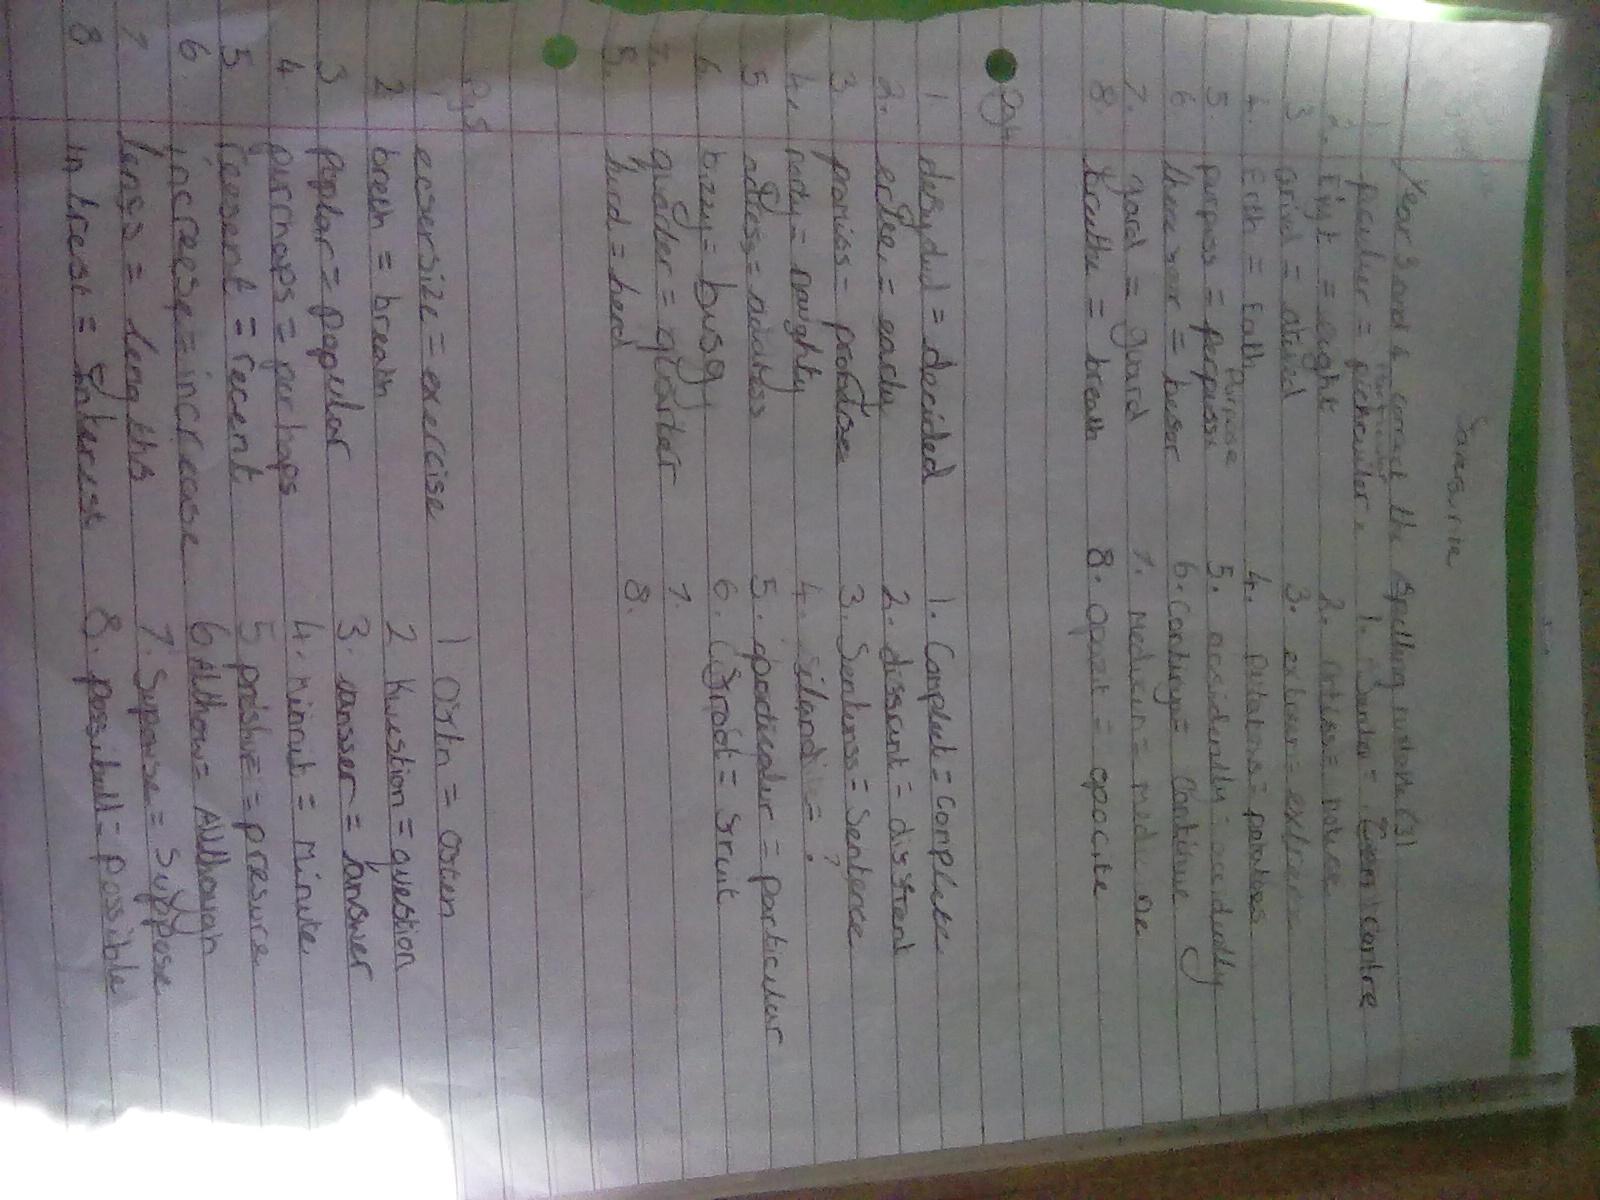 Year 3 and 4 correct the spelling mistake (3)
1. piculur = picheuiler.
2. Eiyt = eight 2. notiss = notice
3 arivd = arived 3. extreem = extreme
4. Erth = Eath 4. putatoes = potatoes
Purpose
5. purpuss = perpuss 5. accidently = accidently
6 = busor 6. Continyu = Continue
7. gard = guard 7. Medicin =
8. = breath 8. Opozit = opocite
Pg 4
1 desydud = decided 1. Compleet = Complete
2. erlee = early 2. dissrint = disffrent
3 promiss = promise 3. Sentinss = Sentence
4. norty = naughty 4. = ?
5 adress = address 5. particulur = particular
6. bizzy = busy 6. froot = fruit
7. quorter = quarter 7.
8. hurd = herd 8.
Pg 5
ecsersize = exercise 1 = often
2. breth = breath 2 Kwestion = question
3 Poplar = Popular 3. ansser = answer
4. purrhaps = perhaps 4. Minnit = Minute
5. reesent = recent 5 preshure = presure
6. increese = increase 6 Althow = Although
7 lenss = lengths 7. Supowse = Suppose
8 intrest = interest 8. possibull = possible